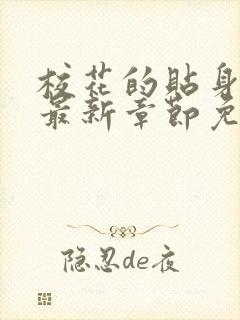 校花的贴身
最新章节免
隐忍de夜